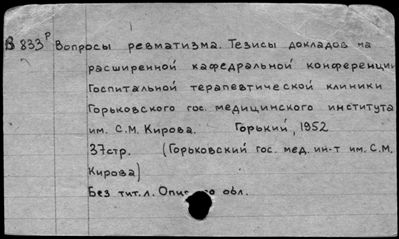 В 833р Вопросы ревматизма. Тезисы докладов на
расширенной кафедральной конференции
Госпитальной терапевтической клиники
Горьковского гос. медицинского института
им. С.М. Кирова. Горький, 1952
37стр. (Горьковский гос. мед. ин-т им. С.М.
Кирова)
Без тит. л. обл.